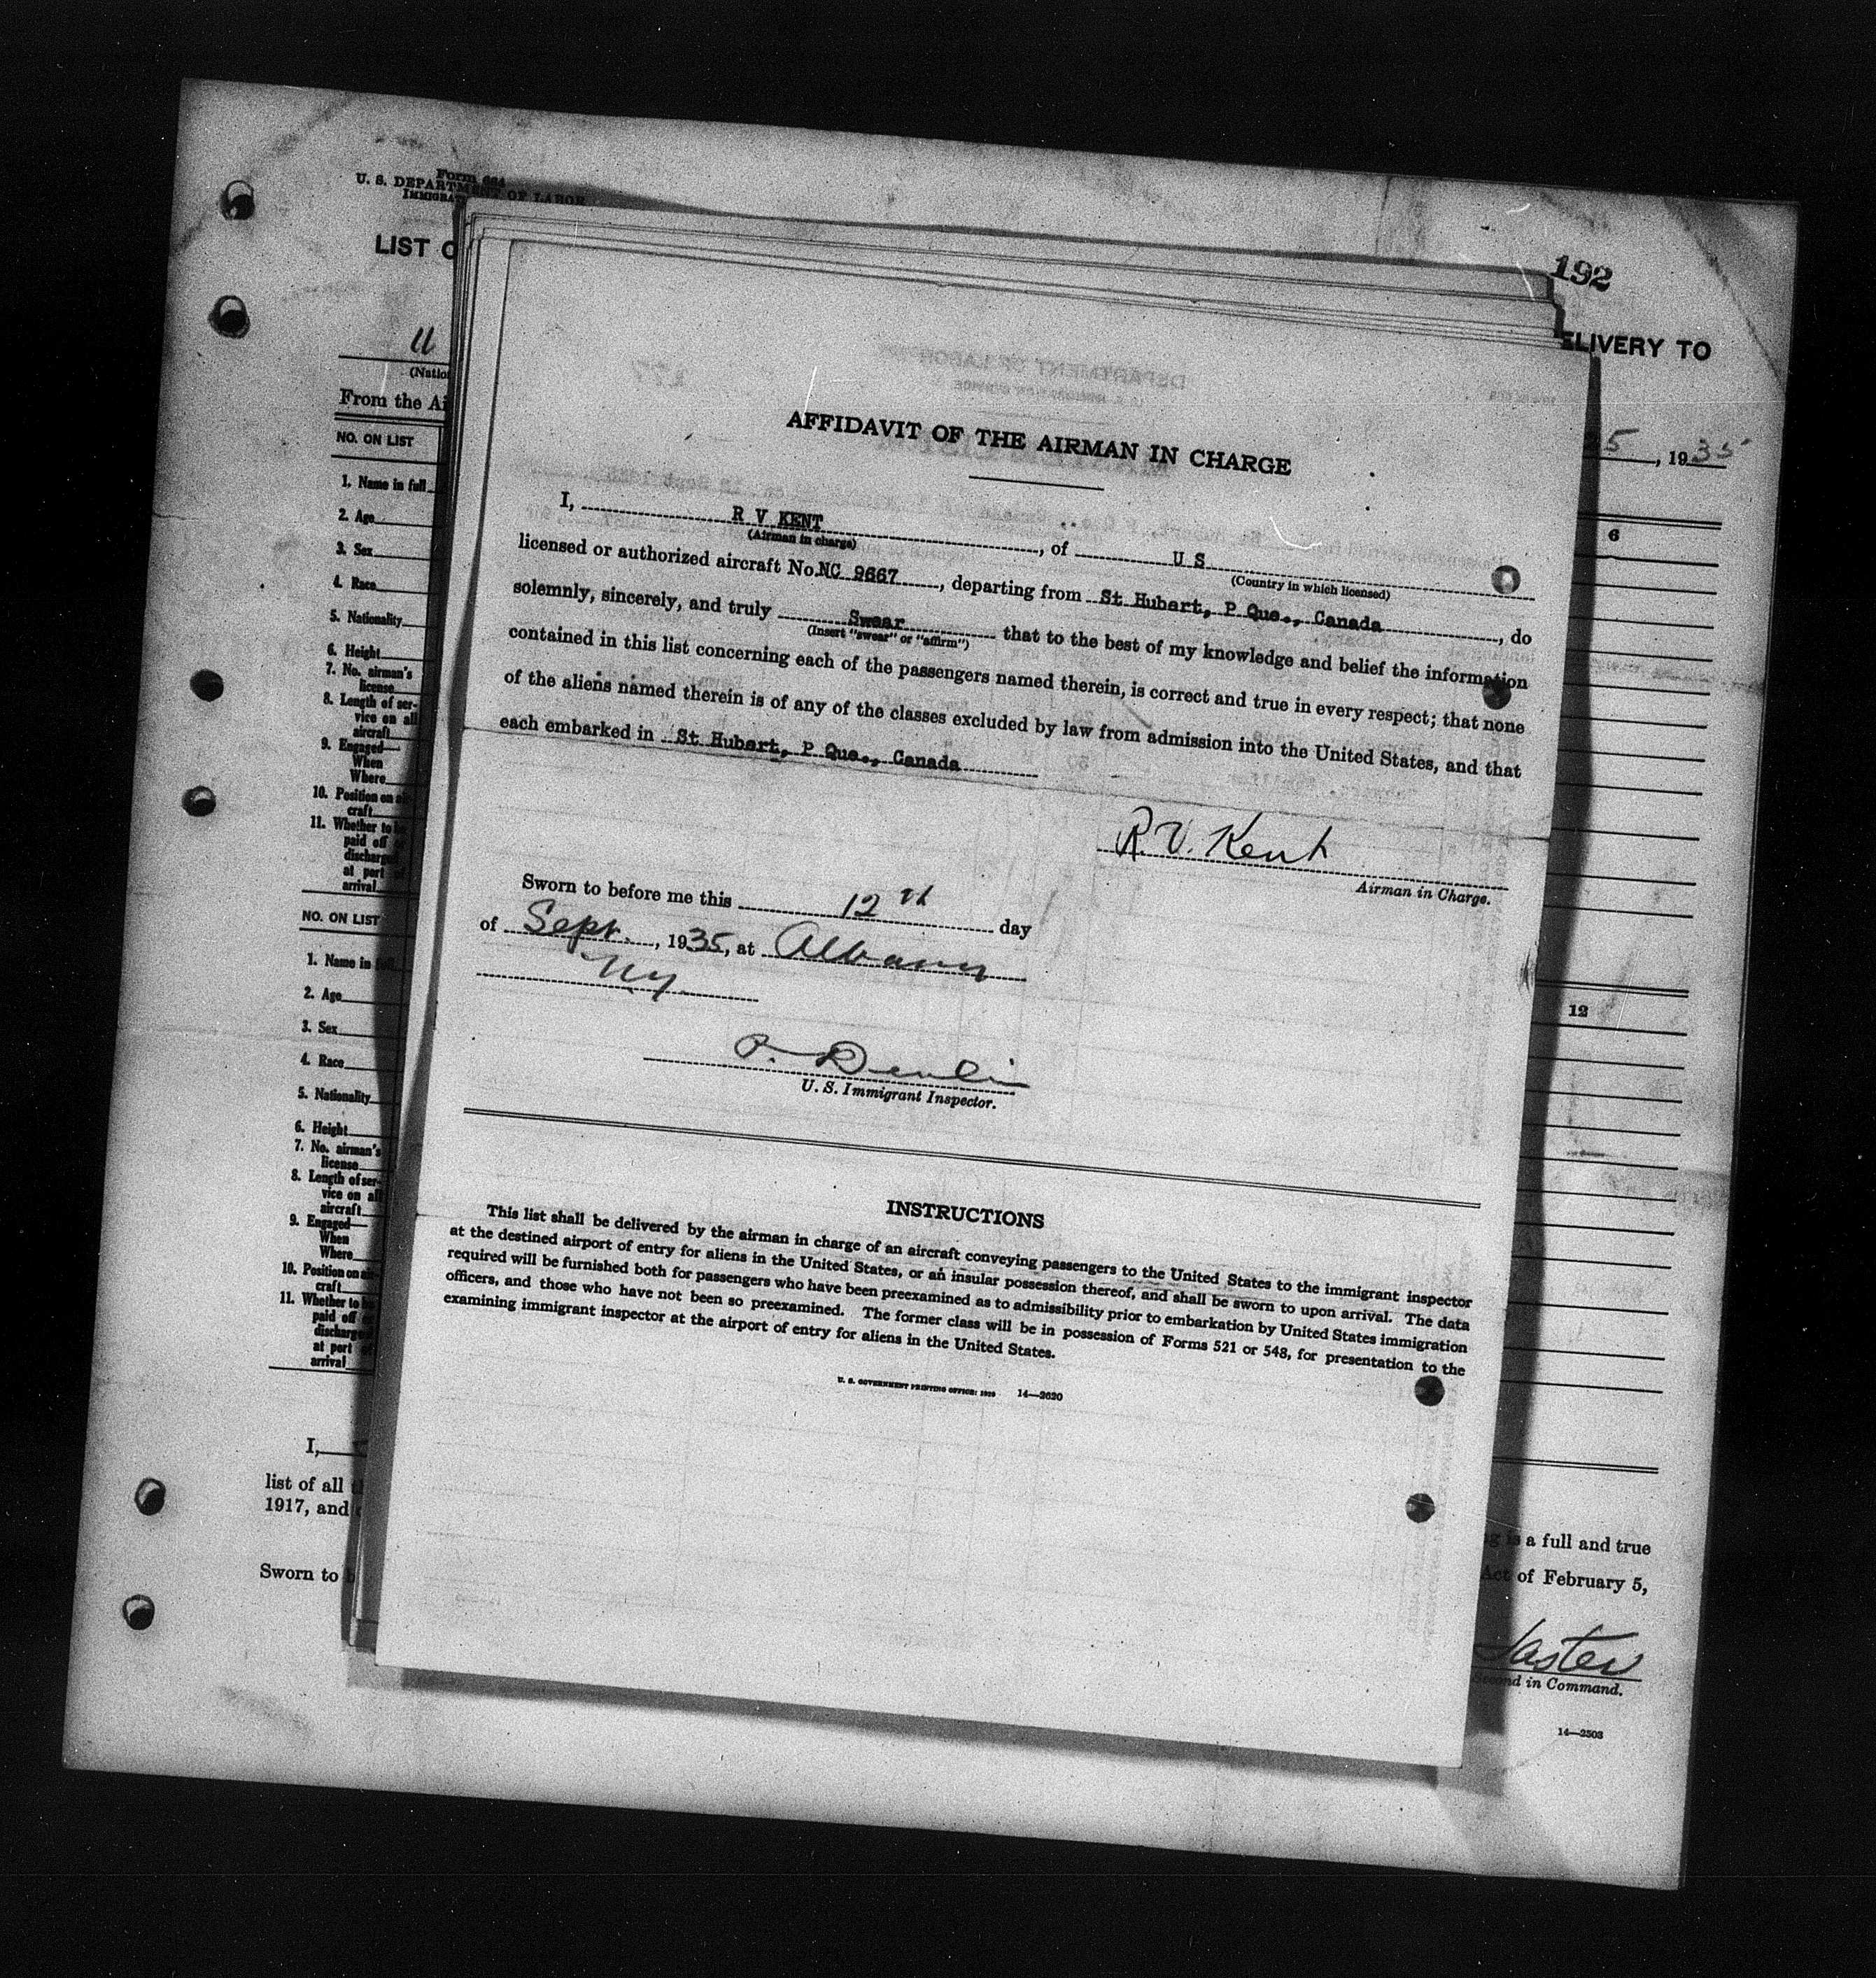 Form 664
U. S. DEPARTMENT OF LABOR
LIST O
192
ELIVERY TO
(Natio
From the Ai
5, 1935
NO. ON LIST
6
1. Name in full
2. Age
3. Sex
4. Race
5. Nationality
6. Height
7. No. airman's
license
8. Length of ser-
vice on all
aircraft
9. Engaged—
When
Where
10. Position on air-
craft
11. Whether to be
paid off or
discharged
at port of
arrival
NO. ON LIST
12
1. Name in full
2. Age
3. Sex
4. Race
5. Nationality
6. Height
7. No. airman's
license
8. Length of ser-
vice on all
aircraft
9. Engaged—
When
Where
10. Position on air-
craft
11. Whether to be
paid off or
discharged
at port of
arrival
I,
list of all
1917, and
Sworn to
is a full and true
Act of February 5,
in Command.
14—2503
AFFIDAVIT OF THE AIRMAN IN CHARGE
I, R V KENT, of U S
(Airman in charge) (Country in which licensed)
licensed or authorized aircraft No. NC 9667, departing from St Hubart, P Que., Canada, do
solemnly, sincerely, and truly Swear that to the best of my knowledge and belief the information
(Insert "swear" or "affirm")
contained in this list concerning each of the passengers named therein, is correct and true in every respect; that none
of the aliens named therein is of any of the classes excluded by law from admission into the United States, and that
each embarked in St Hubart, P Que., Canada
R. V. Kent
Airman in Charge.
Sworn to before me this 12th day
of Sept., 1935, at Albany
NY.
U. S. Immigrant Inspector.
INSTRUCTIONS
This list shall be delivered by the airman in charge of an aircraft conveying passengers to the United States to the immigrant inspector
at the destined airport of entry for aliens in the United States, or an insular possession thereof, and shall be sworn to upon arrival. The data
required will be furnished both for passengers who have been preexamined as to admissibility prior to embarkation by United States immigration
officers, and those who have not been so preexamined. The former class will be in possession of Forms 521 or 548, for presentation to the
examining immigrant inspector at the airport of entry for aliens in the United States.
U. S. GOVERNMENT PRINTING OFFICE: 14—2620